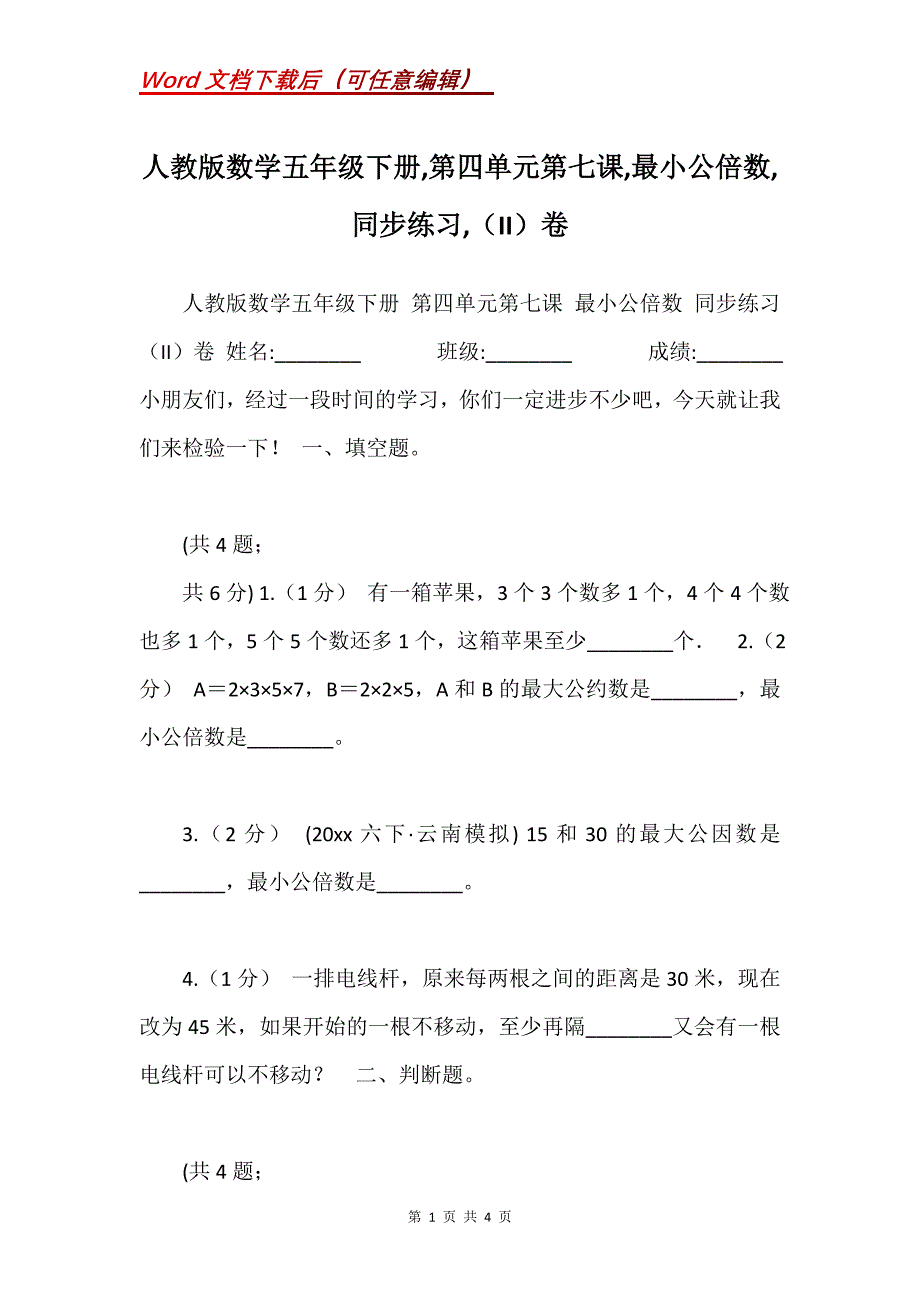 Word 文档下载后（可任意编辑）
人教版数学五年级下册,第四单元第七课,最小公倍数,
同步练习,（II）卷
人教版数学五年级下册 第四单元第七课 最小公倍数 同步练习
（II）卷 姓名:________ 班级:________ 成绩:________
小朋友们，经过一段时间的学习，你们一定进步不少吧，今天就让我
们来检验一下！ 一、填空题。
(共 4 题；
共 6 分) 1.（1 分） 有一箱苹果，3 个 3 个数多 1 个，4 个 4 个数
也多 1 个，5 个 5 个数还多 1 个，这箱苹果至少________个． 2.（2
分） A＝2×3×5×7，B＝2×2×5，A 和 B 的最大公约数是________，最
小公倍数是________。
3.（2 分） (20xx 六下·云南模拟) 15 和 30 的最大公因数是
________，最小公倍数是________。
4.（1 分） 一排电线杆，原来每两根之间的距离是 30 米，现在
改为 45 米，如果开始的一根不移动，至少再隔________又会有一根
电线杆可以不移动？ 二、判断题。
(共 4 题；
第 1 页 共 4 页